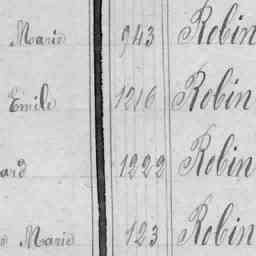 Marie 943 Robin
Emile 1216 Robin
ard 1222 Robin
Marie 123 Robin